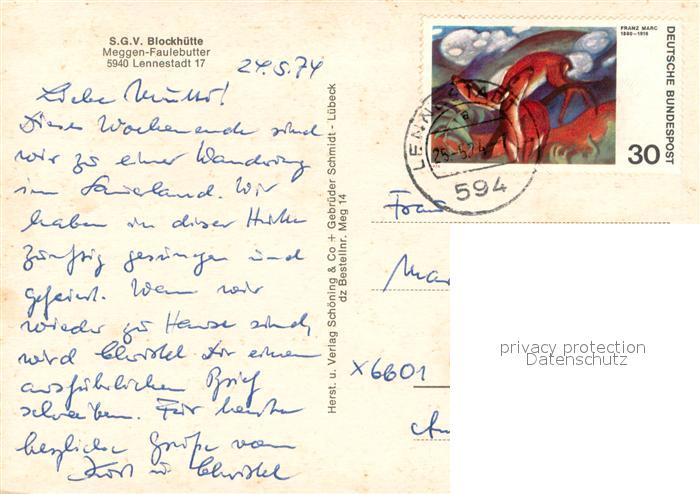 S.G.V. Blockhütte
Meggen-Faulebutter
5940 Lennestadt 17
24.5.74
Liebe Mutti!
Dieses Wochenende sind
wir zu einer Wanderung
im Sauerland. Wir
haben in dieser Hütte
zünftig gesungen und
gefeiert. Wenn wir
wieder zu Hause sind,
wird Christel Dir einen
ausführlichen Brief
schreiben. Für heute
herzliche Grüße von
Kurt u. Christel
Herst. u. Verlag Schöning & Co + Gebrüder Schmidt - Lübeck
dz Bestellnr. Meg 14
FRANZ MARC
1880-1916
DEUTSCHE BUNDESPOST
30
LENNESTADT
a
25.-5.74
594
Frau
Mar
X6601
privacy protection
Datenschutz